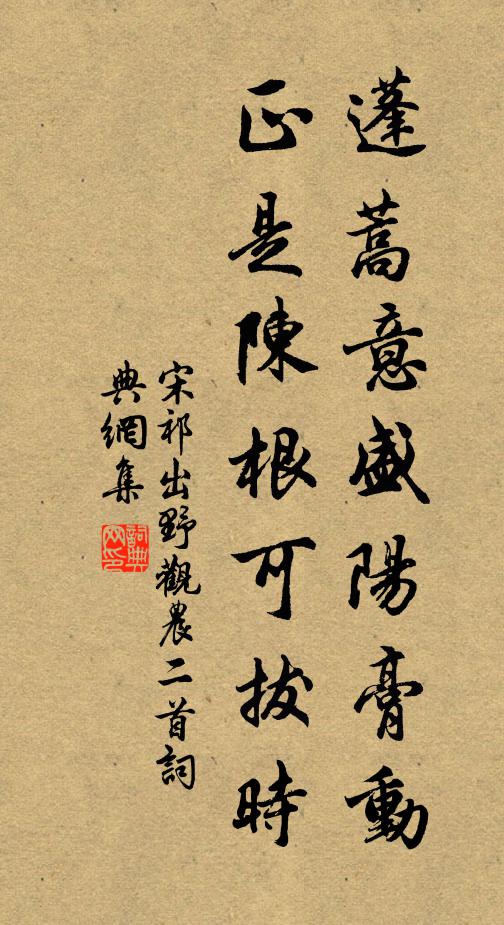 蓬蒿意盛陽膏動
正是陳根可拔時
宋祁出野觀農二首詞
典網集
詞典
网印